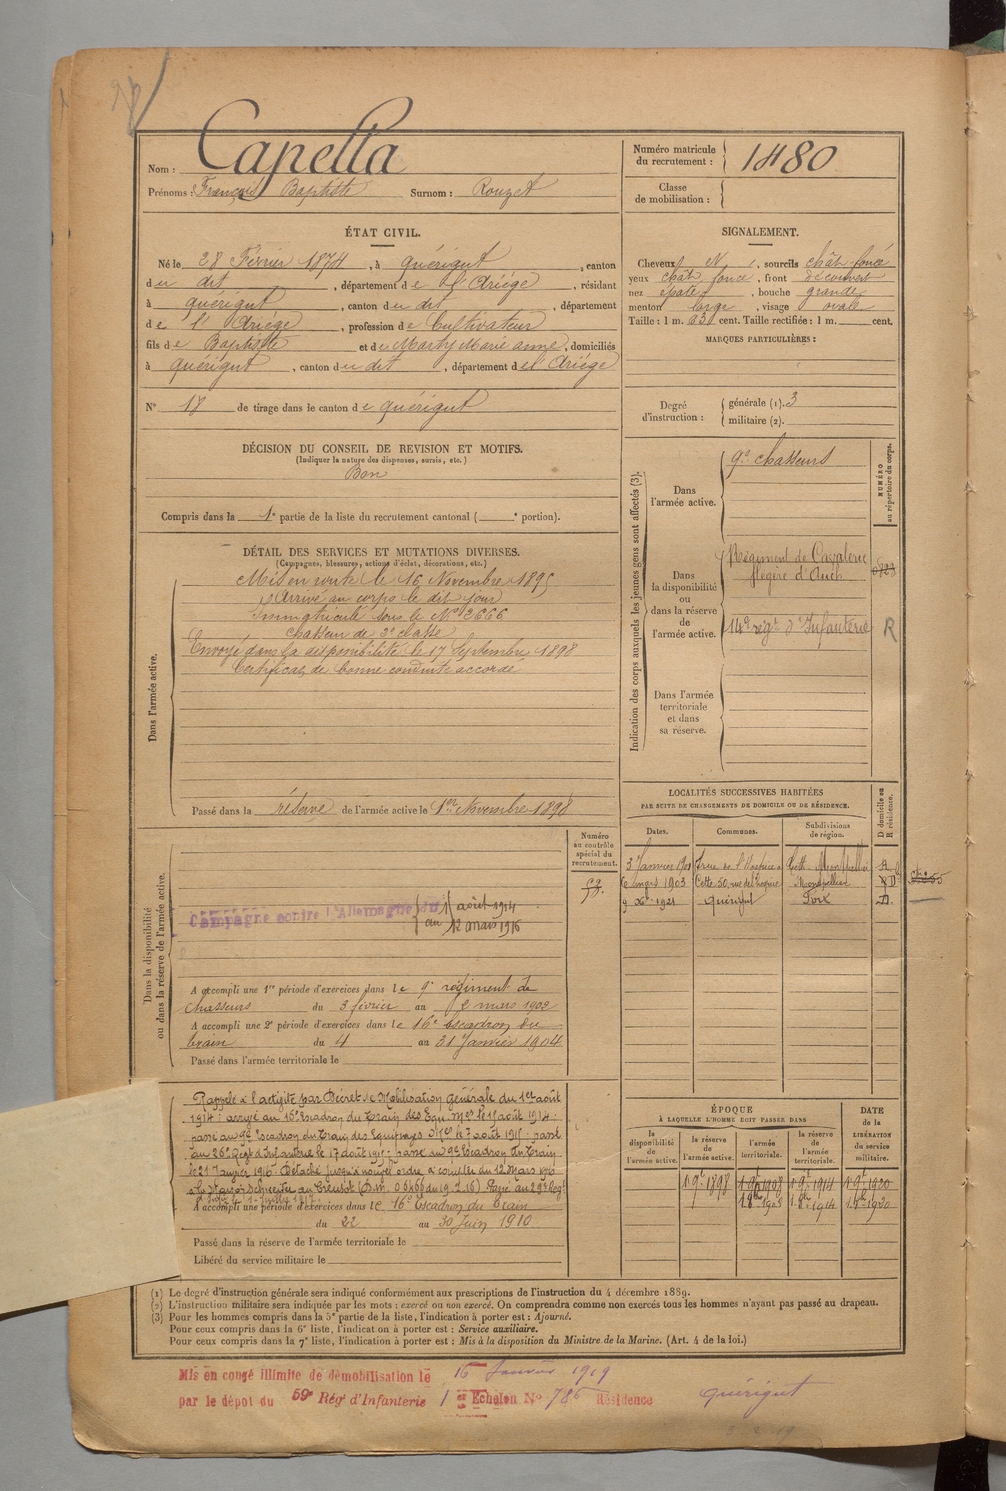 Nom : Capella
Prénoms : François Baptiste Surnom : Rouzet
Numéro matricule
du recrutement : 1480
Classe
de mobilisation :
ÉTAT CIVIL.
Né le 28 Février 1874, à quérigut, canton
du dit, département de l'Ariège, résidant
à quérigut, canton du dit, département
de l'Ariège, profession de Cultivateur
fils de Baptiste et de Marty Marie anne, domiciliés
à quérigut, canton du dit, département de l'Ariège
N° 18 de tirage dans le canton de quérigut
SIGNALEMENT.
Cheveux N, sourcils chât-foncé
yeux chât foncé, front découvert
nez épaté, bouche grande
menton large, visage ovale
Taille : 1 m. 630 cent. Taille rectifiée : 1 m. cent.
MARQUES PARTICULIÈRES :
Degré
d'instruction :
générale (1). 3
militaire (2).
DÉCISION DU CONSEIL DE REVISION ET MOTIFS.
(Indiquer la nature des dispenses, sursis, etc.)
Bon
Compris dans la 1e partie de la liste du recrutement cantonal ( e portion).
DÉTAIL DES SERVICES ET MUTATIONS DIVERSES.
(Campagnes, blessures, actions d'éclat, décorations, etc.)
Dans l'armée active.
Mis en route le 16 Novembre 1895
Arrivé au corps le dit jour
Immatriculé sous le No 2666
chasseur de 2e classe
Envoyé dans la disponibilité le 17 Septembre 1898
Certificat de bonne conduite accordé
Passé dans la réserve de l'armée active le 1er Novembre 1898
Indication des corps auxquels les jeunes gens sont affectés (3).
NUMÉRO
au répertoire du corps.
Dans
l'armée active.
9e chasseurs
Dans
la disponibilité
ou
dans la réserve
de
l'armée active.
Régiment de Cavalerie
légère d'Auch
142e régt d'Infanterie R
Dans l'armée
territoriale
et dans
sa réserve.
LOCALITÉS SUCCESSIVES HABITÉES
PAR SUITE DE CHANGEMENTS DE DOMICILE OU DE RÉSIDENCE.
D domicile ou
R résidence.
Dates. Communes. Subdivisions
de région.
3 Janvier 1901 rue de l'Hospice Cette Montpellier R
6 mars 1903 Cette 50, rue de l'hospice Montpellier D
9 Xbre 1921 quérigut Foix D.
Dans la disponibilité
ou dans la réserve de l'armée active.
Numéro
au contrôle
spécial du
recrutement.
Campagne contre l'Allemagne du 1 août 1914
au 12 mars 1916
A accompli une 1re période d'exercices dans le 9e régiment de
chasseurs du 3 février au 2 mars 1902
A accompli une 2e période d'exercices dans le 16e Escadron du
train du 4 au 31 Janvier 1904
Passé dans l'armée territoriale le
Rappelé à l'activité par Décret de Mobilisation générale du 1er août
1914 : arrivé au 16e Escadron du train des Equ. Mres le 15 août 1914 :
passé au 9e Escadron du Train des Equipages Mres le 7 août 1915 : passé
au 26e Régt d'Infanterie le 17 août 1915 : passé au 9e Escadron du Train
le 21 Janvier 1916. Détaché jusqu'à nouvel ordre à compter du 12 Mars 1916
Mson Schneider au Creusot Passé au 29e Regt
1 Juillet 1917
A accompli une période d'exercices dans le 16e Escadron du Train
du 22 au 30 Juin 1910
Passé dans la réserve de l'armée territoriale le
Libéré du service militaire le
ÉPOQUE
À LAQUELLE L'HOMME DOIT PASSER DANS
DATE
de la
LIBÉRATION
du service
militaire.
la
disponibilité
de
l'armée active.
la réserve
de
l'armée active.
l'armée
territoriale.
la réserve
de
l'armée
territoriale.
1 9bre 1898 1 9bre 1908 1 9bre 1914 1 9bre 1920
1 8bre 1908 1 8bre 1914 1 8bre 1920
(1) Le degré d'instruction générale sera indiqué conformément aux prescriptions de l'instruction du 4 décembre 1889.
(2) L'instruction militaire sera indiquée par les mots : exercé ou non exercé. On comprendra comme non exercés tous les hommes n'ayant pas passé au drapeau.
(3) Pour les hommes compris dans la 5e partie de la liste, l'indication à porter est : Ajourné.
Pour ceux compris dans la 6e liste, l'indication à porter est : Service auxiliaire.
Pour ceux compris dans la 7e liste, l'indication à porter est : Mis à la disposition du Ministre de la Marine. (Art. 4 de la loi.)
Mis en congé illimité de démobilisation le 16 Janvier 1919
par le dépôt du 59e Régt d'Infanterie 1er Echelon No 786 Résidence quérigut